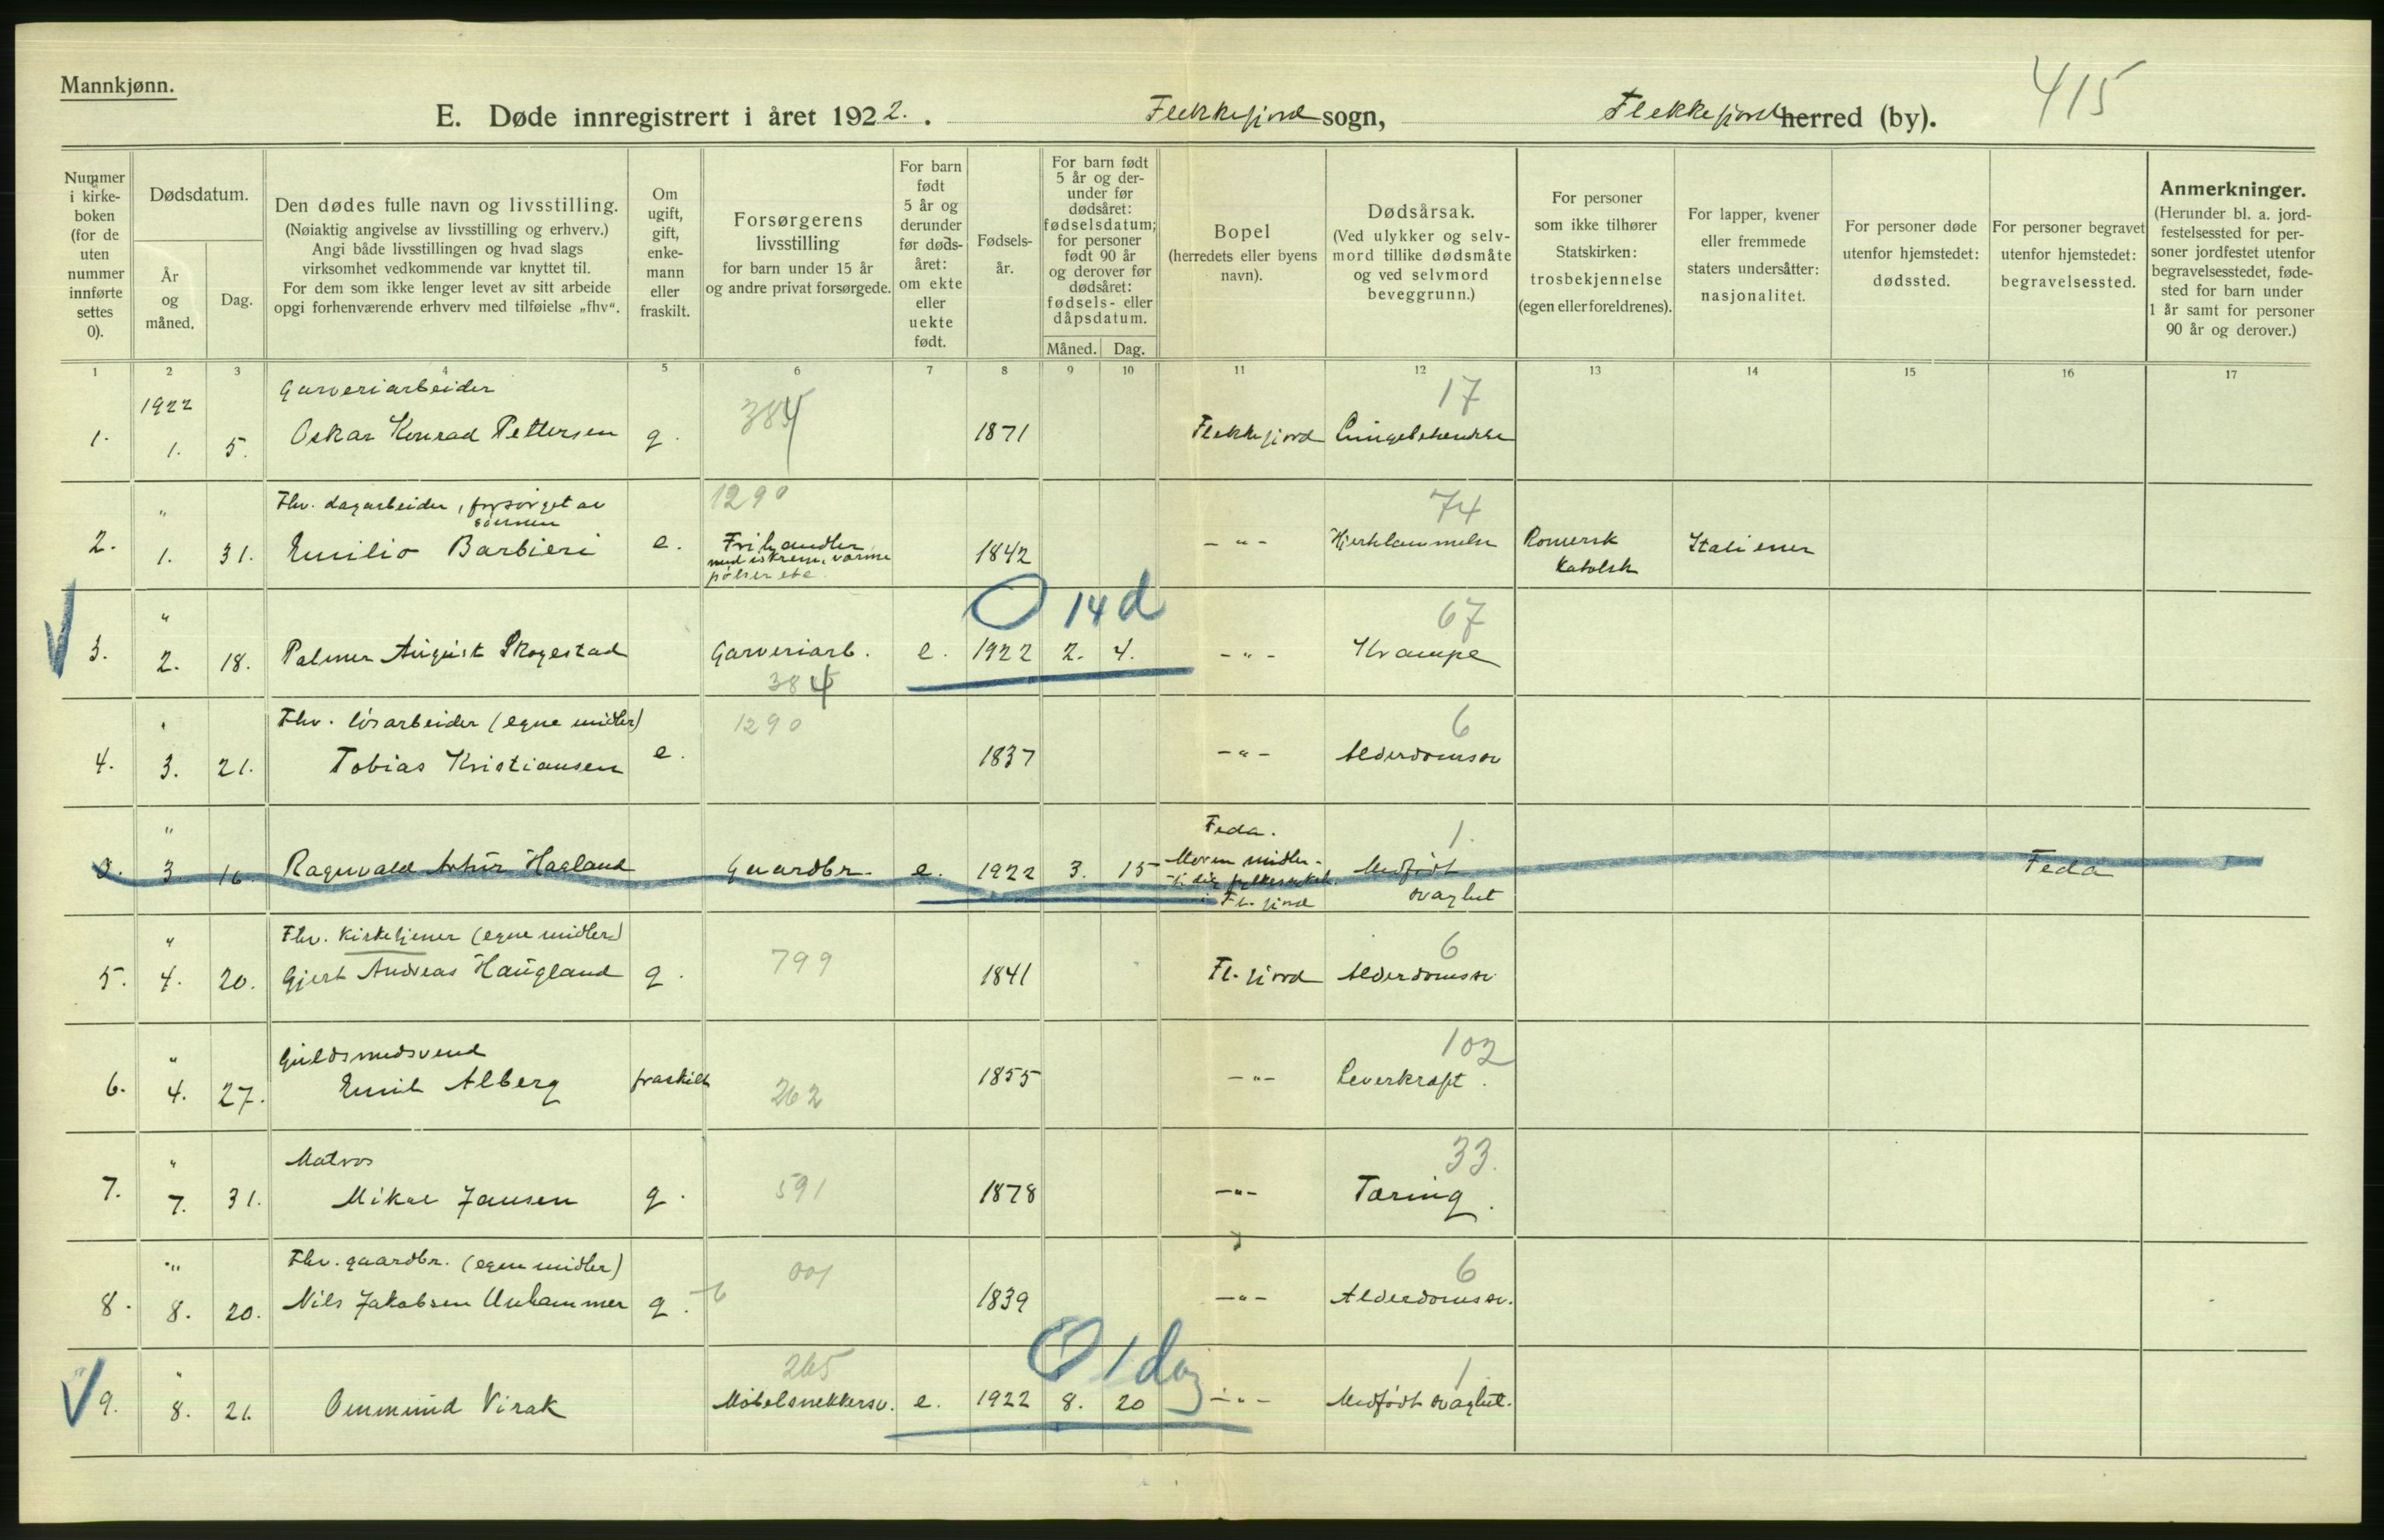 Mannkjønn.
415
E. Døde innregistrert i året 1922. . Flekkefjord sogn, Flekkefjord herred (by).
Nummer i kirke- boken (for de uten nummer innførte settes 0).
Dødsdatum.
År og måned.
Dag.
Den dødes fulle navn og livsstilling.
(Nøiaktig angivelse av livsstilling og erhverv.)
Angi både livsstillingen og hvad slags
virksomhet vedkommende var knyttet til.
For dem som ikke lenger levet av sitt arbeide
opgi forhenværende erhverv med tilføielse „fhv“.
Om ugift, gift, enke- mann eller fraskilt.
Forsørgerens livsstilling
for barn under 15 år
og andre privat forsørgede.
For barn født 5 år og derunder før døds- året: om ekte eller uekte født.
Fødsels- år.
For barn født 5 år og der- under før dødsåret: fødselsdatum; for personer født 90 år og derover før dødsåret: fødsels- eller dåpsdatum.
Måned. Dag.
Bopel
(herredets eller byens navn).
Dødsårsak.
(Ved ulykker og selv- mord tillike dødsmåte og ved selvmord beveggrunn.)
For personer som ikke tilhører Statskirken: trosbekjennelse (egen eller foreldrenes).
For lapper, kvener eller fremmede staters undersåtter: nasjonalitet.
For personer døde utenfor hjemstedet: dødssted.
For personer begravet utenfor hjemstedet: begravelsessted.
Anmerkninger.
(Herunder bl. a. jord- festelsessted for per- soner jordfestet utenfor begravelsesstedet, føde- sted for barn under 1 år samt for personer 90 år og derover.)
1 2 3 4 5 6 7 8 9 10 11 12 13 14 15 16 17
1922 Garveriarbeider 384 17
1. 1. 5. Oskar Konrad Pettersen g. 1871 Flekkefjord Lungebetendelse
" Fhv. dagarbeider, forsørget av sønnen 1290 74
2. 1. 31. Emilio Barbieri e. Frihandler med iskrem, varme pølser etc. 1842 -"- Hjertelammelse Romersk katolsk Italiener
" O 14 d 67
3. 2. 18. Palmer August Skogestad Garveriarb. e. 1922 2. 4. -"- Krampe
384
" Fhv. løsarbeider (egne midler) 1290 6
4. 3. 21. Tobias Kristiansen e. 1837 -"- Alderdomssv
" Feda. 1.
0. 3. 16. Ragnvald Arthur Haaland Gaardbr. e. 1922 3. 15 Moren midler- tidig i Fl.fjord Medfødt svaghet Feda
" Fhv. Kirketjener (egne midler) 799 6
5. 4. 20. Gjert Andreas Haugland g. 1841 Fl.fjord Alderdomssv.
" Guldsmedsvend 102
6. 4. 27. Emil Alberg fraskilt 262 1855 -"- Leverkræft.
" Matros 33.
7. 7. 31. Mikal Jansen g. 591 1878 -"- Tæring.
" Fhv. gaardbr. (egne midler) 001 6
8. 8. 20. Nils Jakobsen Unhammer g. 1839 -"- Alderdomssv.
" 265 O 1 dag 1
9. 8. 21. Ommund Virak Møbelsnekkersv. e. 1922 8. 20 -"- Medfødt svaghet.